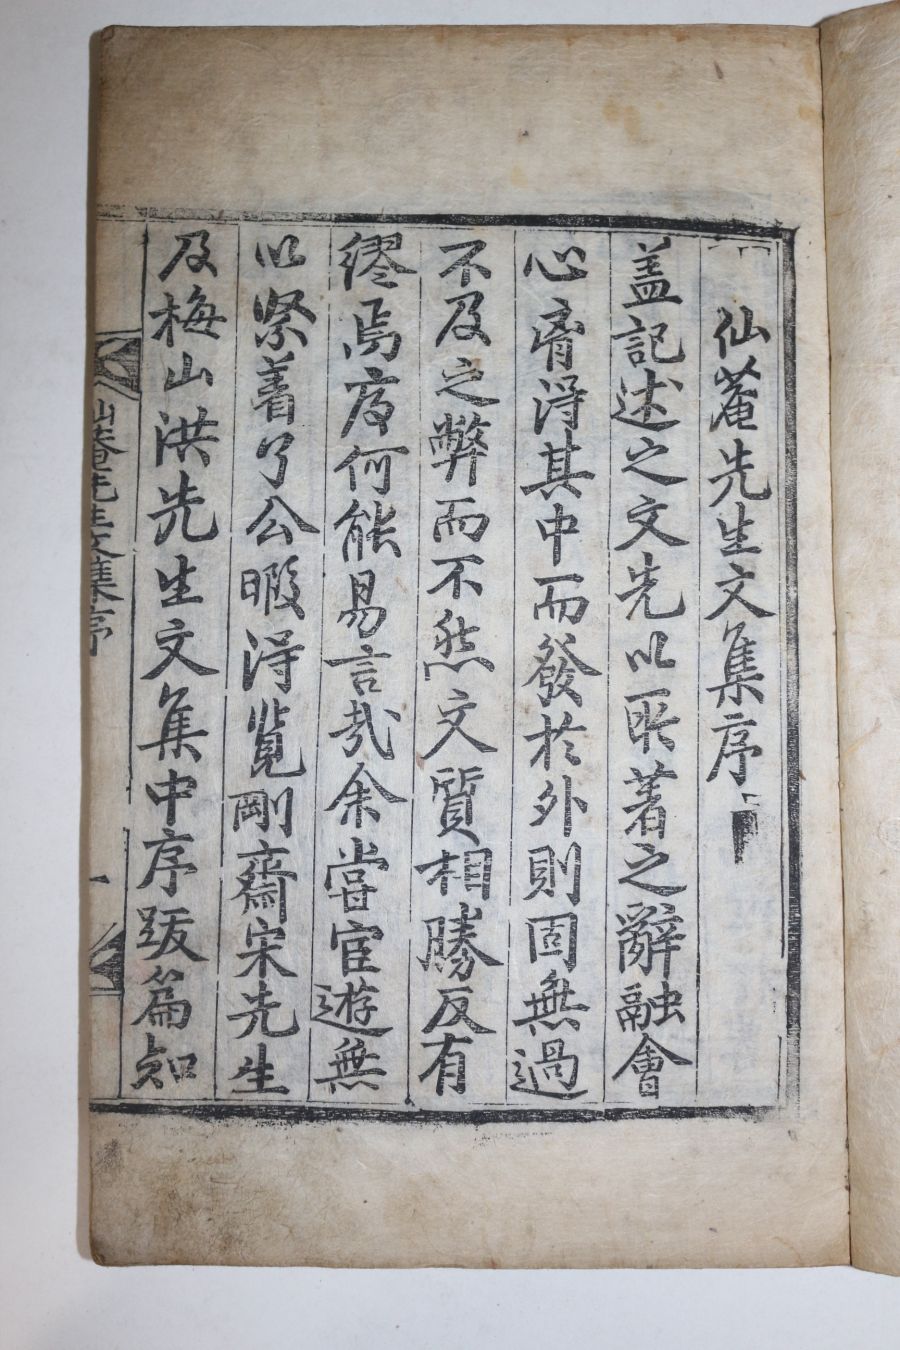 仙菴先生文集序
盖記述之文先以所著之辭融會
心膂淂其中而發於外則固無過
不及之弊而不然文質相勝反有
繆焉庋何能易言哉余嘗宦遊無
以紧着了公暇淂覽剛齋宋先生
及梅山洪先生文集中序跋篇知
仙菴先生文集序
一